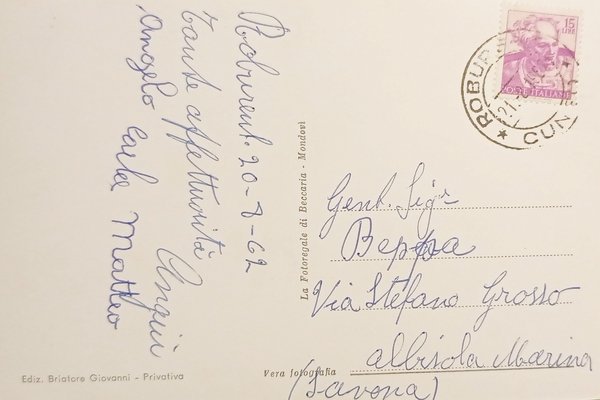 Roburent. 20-8-62
Tante affettuosità
Angelo Carla Matteo
La Fotoregale di Beccaria - Mondovì
Gent. Sig.
Beppa
Via Stefano Grosso
Albisola Marina
(Savona)
Vera fotografia
Ediz. Briatore Giovanni - Privativa
15 LIRE
POSTE ITALIANE